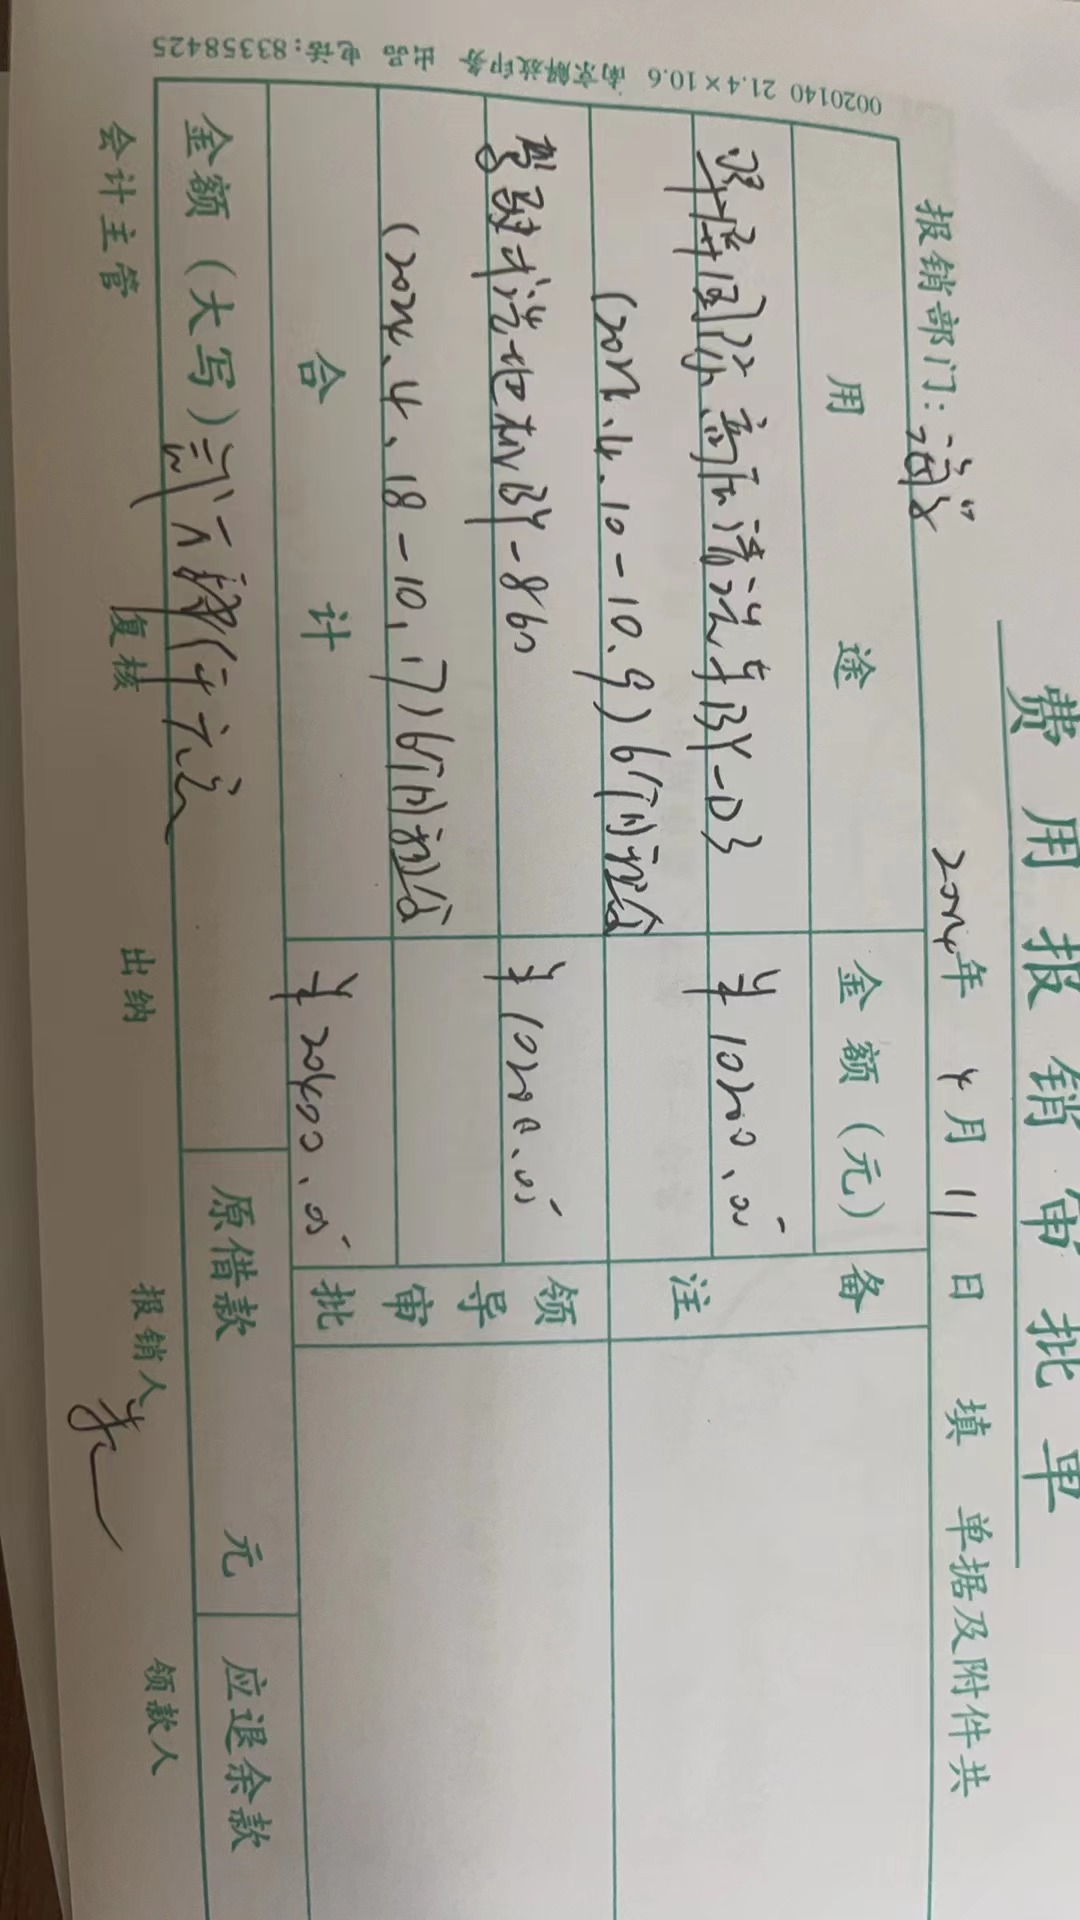 费用报销审批单
报销部门：清 2024年 4月 11日 填 单据及附件共
用 途 金额（元） 备注
环卫 高压清洗车BY-D3 ¥10200.00
(2024.4.10-10.9) 6个月租金
驾驶式洗地机BY-860 ¥10200.00
(2024.4.18-10.17) 6个月租金
合 计 ¥20400.00
领导审批
金额（大写）贰万零肆佰元 原借款 元 应退余款
会计主管 复核 出纳 报销人 领款人
0020140 21.4×10.6 南京解放印务 出品 电话:83358425